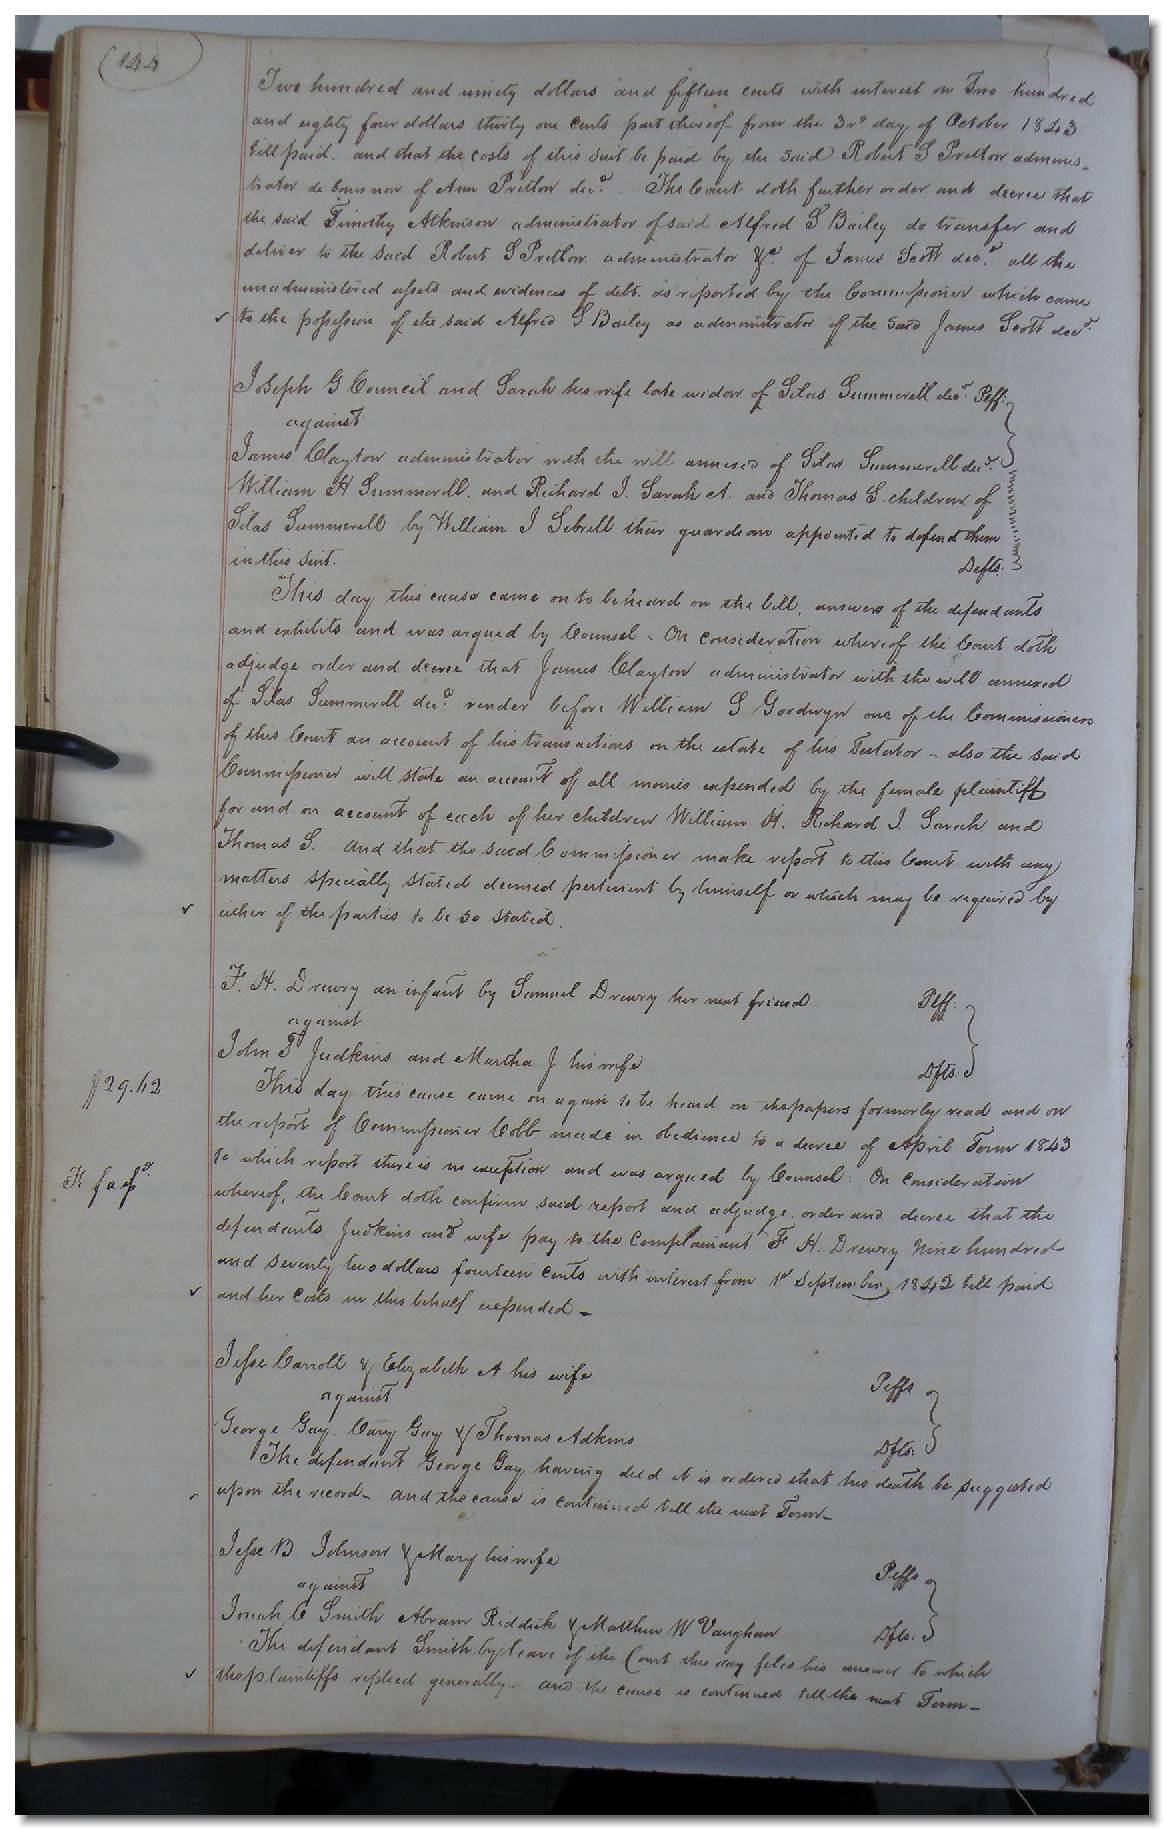 144
Two hundred and ninety dollars and fifteen cents with interest on Two hundred
and eighty four dollars thirty one cents part thereof from the 3rd day of October 1843
till paid. and that the costs of this suit be paid by the said Robert S Pretlow adminis-
trator de bonis non of Ann Pretlow decd. The Court doth further order and decree that
the said Timothy Atkinson administrator of said Alfred S Bailey do transfer and
deliver to the said Robert S Pretlow administrator &c. of James Scott decd. all the
unadministered assets and evidences of debt as reported by the Commissioner which came
to the possession of the said Alfred S Bailey as administrator of the said James Scott decd.
Joseph G Council and Sarah his wife late widow of Silas Summerell decd. Plff:
against
James Clayton administrator with the will annexed of Silas Summerell decd.
William H Summerell, and Richard J. Sarah A. and Thomas S. children of
Silas Summerell by William J Sebrell their guardian appointed to defend them
in this suit. Defts:
This day this cause came on to be heard on the bill, answers of the defendants
and exhibits and was argued by Counsel. On consideration whereof the Court doth
adjudge order and decree that James Clayton administrator with the will annexed
of Silas Summerell decd. render before William S Goodwyn one of the Commissioners
of this Court an account of his transactions on the estate of his Testator - also the said
Commissioner will state an account of all monies expended by the female plaintiff
for and on account of each of her children William H. Richard J. Sarah and
Thomas S. And that the said Commissioner make report to this Court with any
matters specially stated deemed pertinent by himself or which may be required by
either of the parties to be so stated.
F. H. Drewry an infant by Samuel Drewry her next friend Plff:
against
John T Judkins and Martha J his wife Dfts:
$29.62
This day this cause came on again to be heard on the papers formerly read and on
the report of Commissioner Cobb made in obedience to a decree of April Term 1843
to which report there is no exception and was argued by Counsel: On consideration
whereof, the Court doth confirm said report and adjudge order and decree that the
defendants Judkins and wife pay to the Complainant F H. Drewry Nine hundred
and seventy two dollars fourteen cents with interest from 1st September, 1842 till paid
and her Costs in this behalf expended -
Jesse Carroll & Elizabeth A his wife Plffs
against
George Gay. Cary Gay & Thomas Adkins Dfts:
The defendant George Gay having died it is ordered that his death be suggested
upon the record - and the cause is continued till the next Term -
Jesse B Johnson & Mary his wife Plffs
against
Jonah C Smith Abram Riddick & Matthew W Vaughan Dfts.
The defendant Smith by leave of the Court this day files his answer to which
the plaintiffs replied generally - and the cause is continued till the next Term -